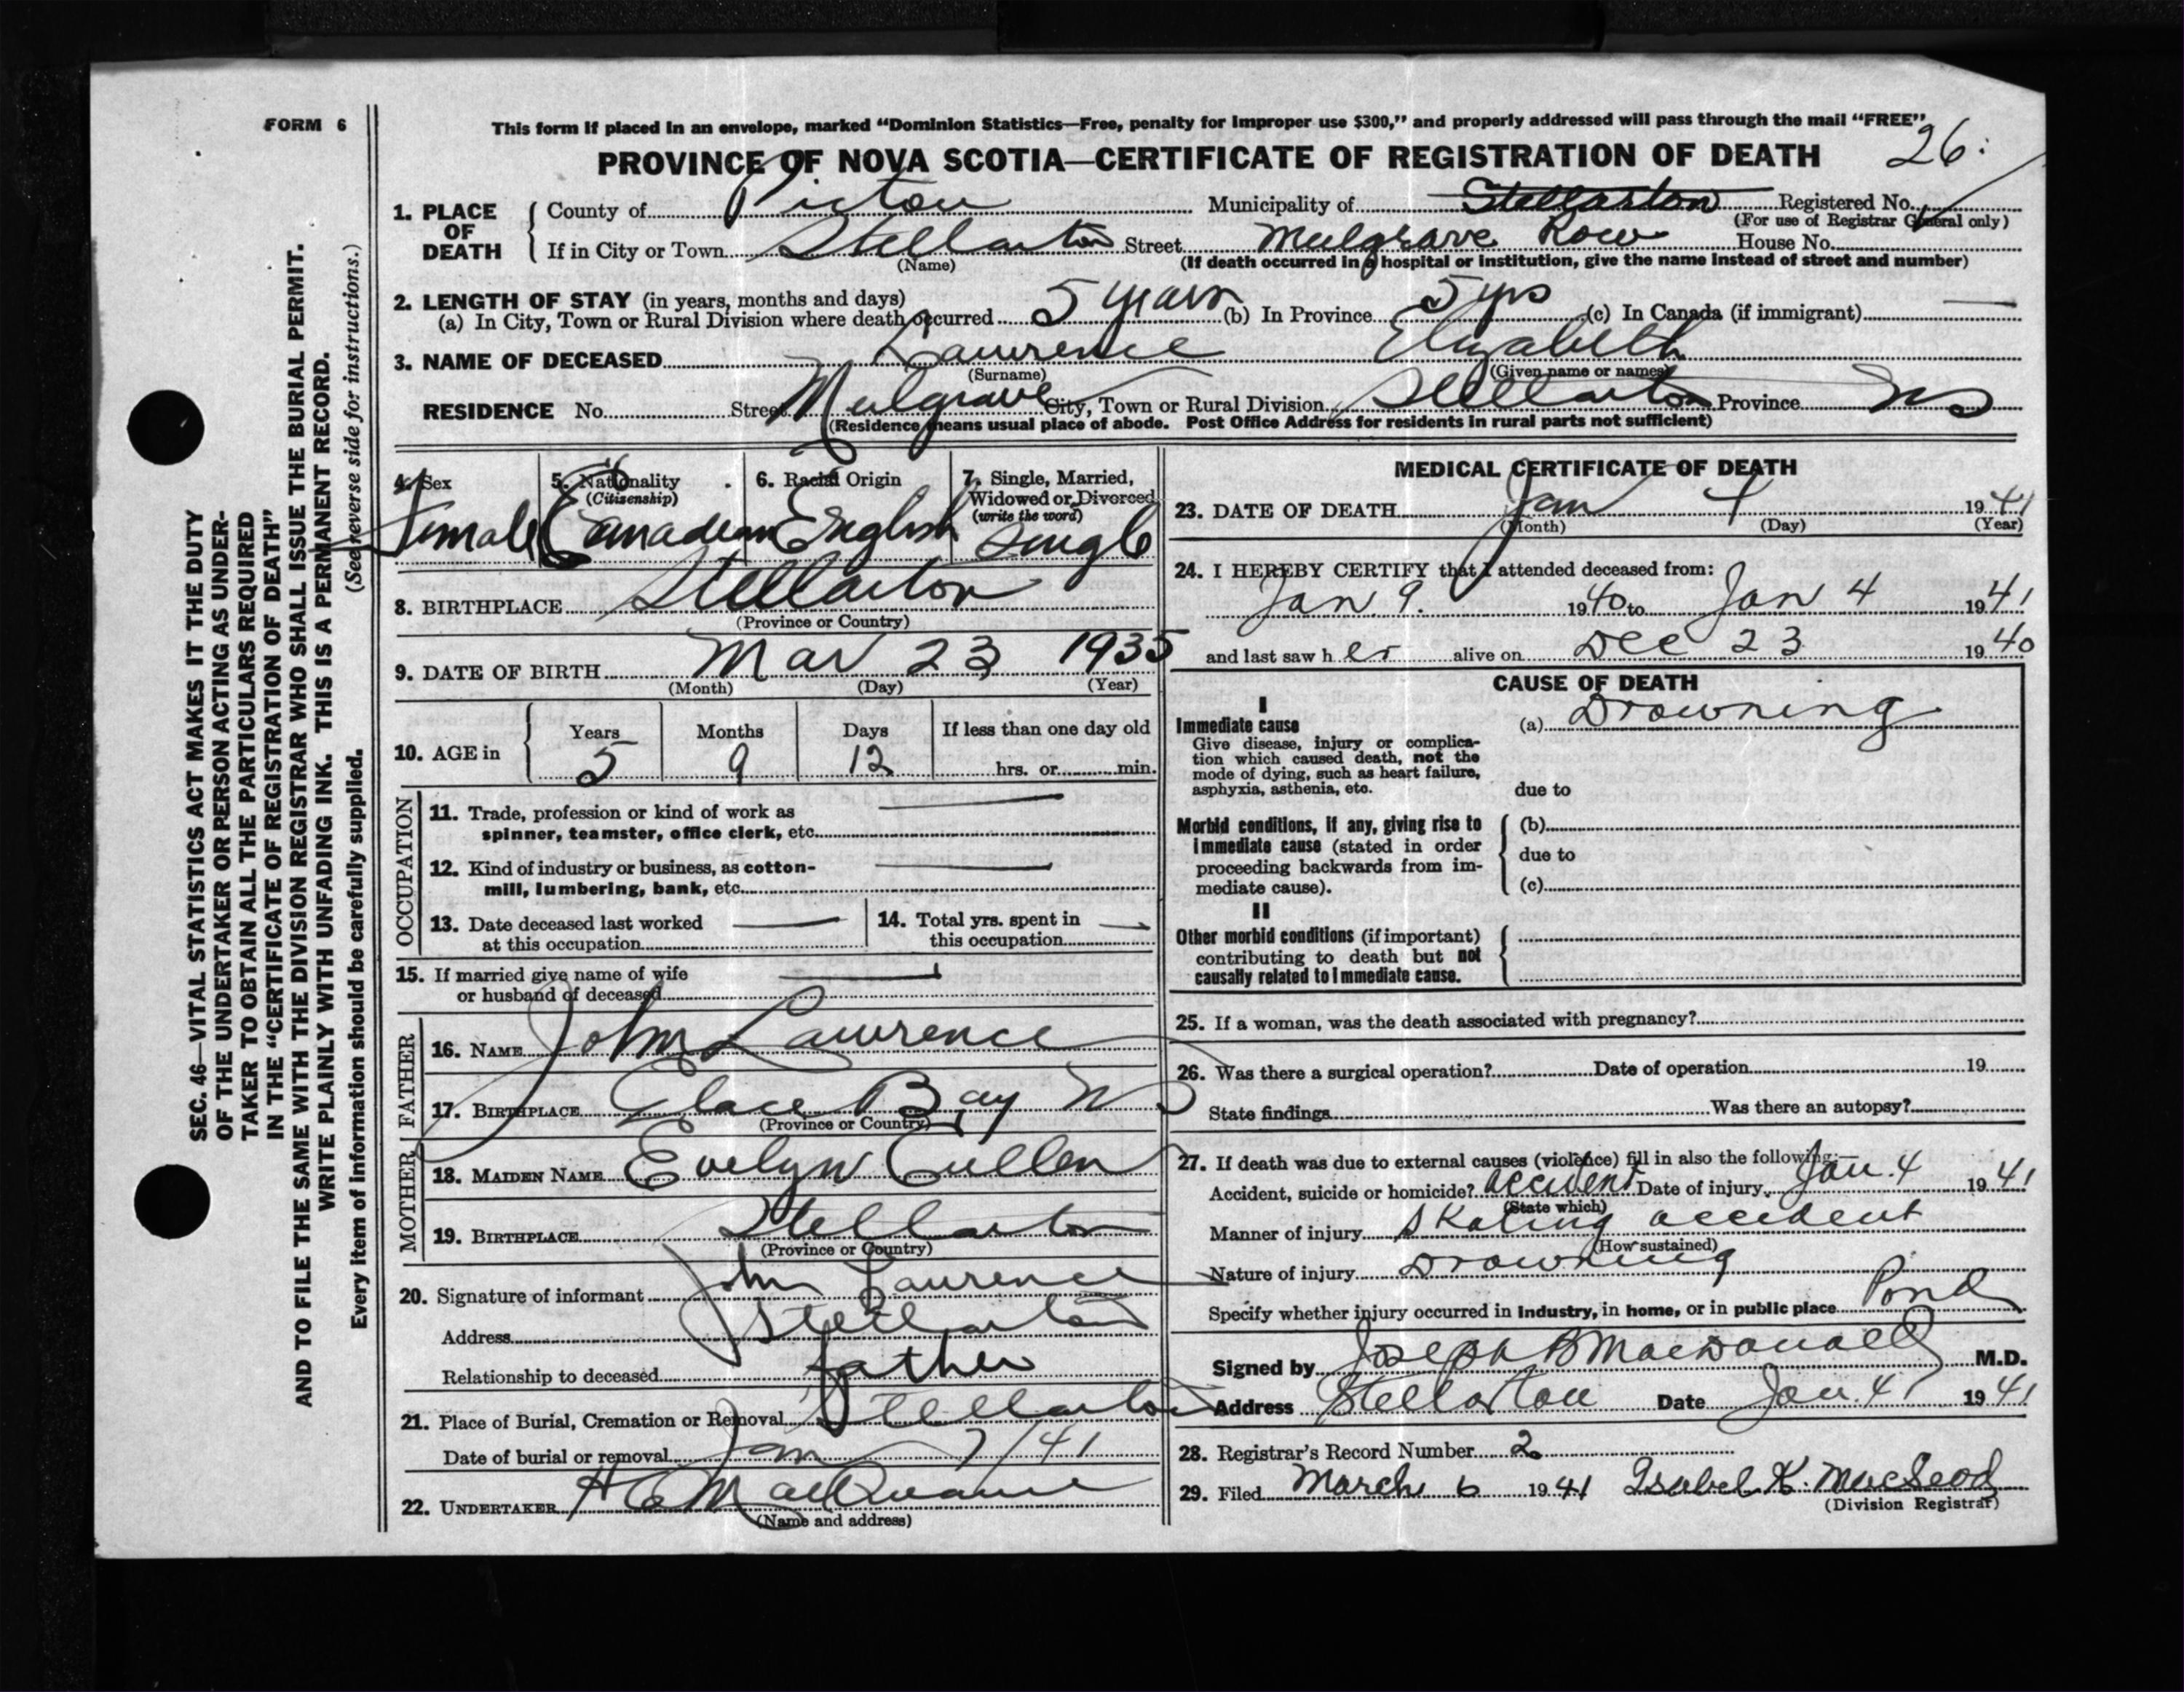 FORM 6
This form if placed in an envelope, marked "Dominion Statistics—Free, penalty for improper use $300," and properly addressed will pass through the mail "FREE"
26
PROVINCE OF NOVA SCOTIA—CERTIFICATE OF REGISTRATION OF DEATH
SEC. 46—VITAL STATISTICS ACT MAKES IT THE DUTY
OF THE UNDERTAKER OR PERSON ACTING AS UNDER-
TAKER TO OBTAIN ALL THE PARTICULARS REQUIRED
IN THE "CERTIFICATE OF REGISTRATION OF DEATH"
AND TO FILE THE SAME WITH THE DIVISION REGISTRAR WHO SHALL ISSUE THE BURIAL PERMIT.
WRITE PLAINLY WITH UNFADING INK. THIS IS A PERMANENT RECORD.
Every item of information should be carefully supplied. (See reverse side for instructions.)
1. PLACE OF DEATH
County of Pictou Municipality of Stellarton Registered No.
(For use of Registrar General only)
If in City or Town Stellarton Street Mulgrave Row House No.
(Name) (If death occurred in a hospital or institution, give the name instead of street and number)
2. LENGTH OF STAY (in years, months and days)
(a) In City, Town or Rural Division where death occurred 5 years (b) In Province 5 yrs (c) In Canada (if immigrant) —
3. NAME OF DECEASED Lawrence Elizabeth
(Surname) (Given name or names)
RESIDENCE No. Street Mulgrave City, Town or Rural Division Stellarton Province NS
(Residence means usual place of abode. Post Office Address for residents in rural parts not sufficient)
4. Sex
Female
5. Nationality
(Citizenship)
Canadian
6. Racial Origin
English
7. Single, Married,
Widowed or Divorced
(write the word)
Single
8. BIRTHPLACE Stellarton
(Province or Country)
9. DATE OF BIRTH Mar 23 1935
(Month) (Day) (Year)
10. AGE in
Years Months Days If less than one day old
5 9 12 hrs. or min.
OCCUPATION
11. Trade, profession or kind of work as
spinner, teamster, office clerk, etc. —
12. Kind of industry or business, as cotton-
mill, lumbering, bank, etc. —
13. Date deceased last worked
at this occupation —
14. Total yrs. spent in
this occupation —
15. If married give name of wife
or husband of deceased —
FATHER
16. NAME John Lawrence
17. BIRTHPLACE Glace Bay NS
(Province or Country)
MOTHER
18. MAIDEN NAME Evelyn Cullen
19. BIRTHPLACE Stellarton
(Province or Country)
20. Signature of informant John Lawrence
Address Stellarton
Relationship to deceased father
21. Place of Burial, Cremation or Removal Stellarton
Date of burial or removal Jan 7/41
22. UNDERTAKER
(Name and address)
MEDICAL CERTIFICATE OF DEATH
23. DATE OF DEATH Jan 4 1941
(Month) (Day) (Year)
24. I HEREBY CERTIFY that I attended deceased from:
Jan 9. 1940 to Jan 4 1941
and last saw her alive on Dec 23 1940
CAUSE OF DEATH
I
Immediate cause
Give disease, injury or complica-
tion which caused death, not the
mode of dying, such as heart failure,
asphyxia, asthenia, etc.
(a) Drowning
due to
Morbid conditions, if any, giving rise to
immediate cause (stated in order
proceeding backwards from im-
mediate cause).
(b)
due to
(c)
II
Other morbid conditions (if important)
contributing to death but not
causally related to immediate cause.
25. If a woman, was the death associated with pregnancy?
26. Was there a surgical operation? Date of operation 19
State findings Was there an autopsy?
27. If death was due to external causes (violence) fill in also the following:—
Accident, suicide or homicide? accident Date of injury Jan. 4 1941
(State which)
Manner of injury Skating accident
(How sustained)
Nature of injury Drowning
Specify whether injury occurred in industry, in home, or in public place Pond
Signed by Joseph B MacDonald M.D.
Address Stellarton Date Jan. 4 1941
28. Registrar's Record Number 2
29. Filed March 6 1941 Isabel K. MacLeod
(Division Registrar)